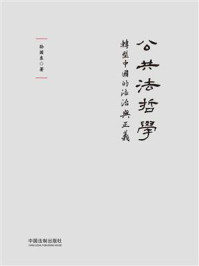 公共法哲學
轉型中國的法治與正義
孫國東 著
中国法制出版社
CHINA LEGAL PUBLISHING HOUSE